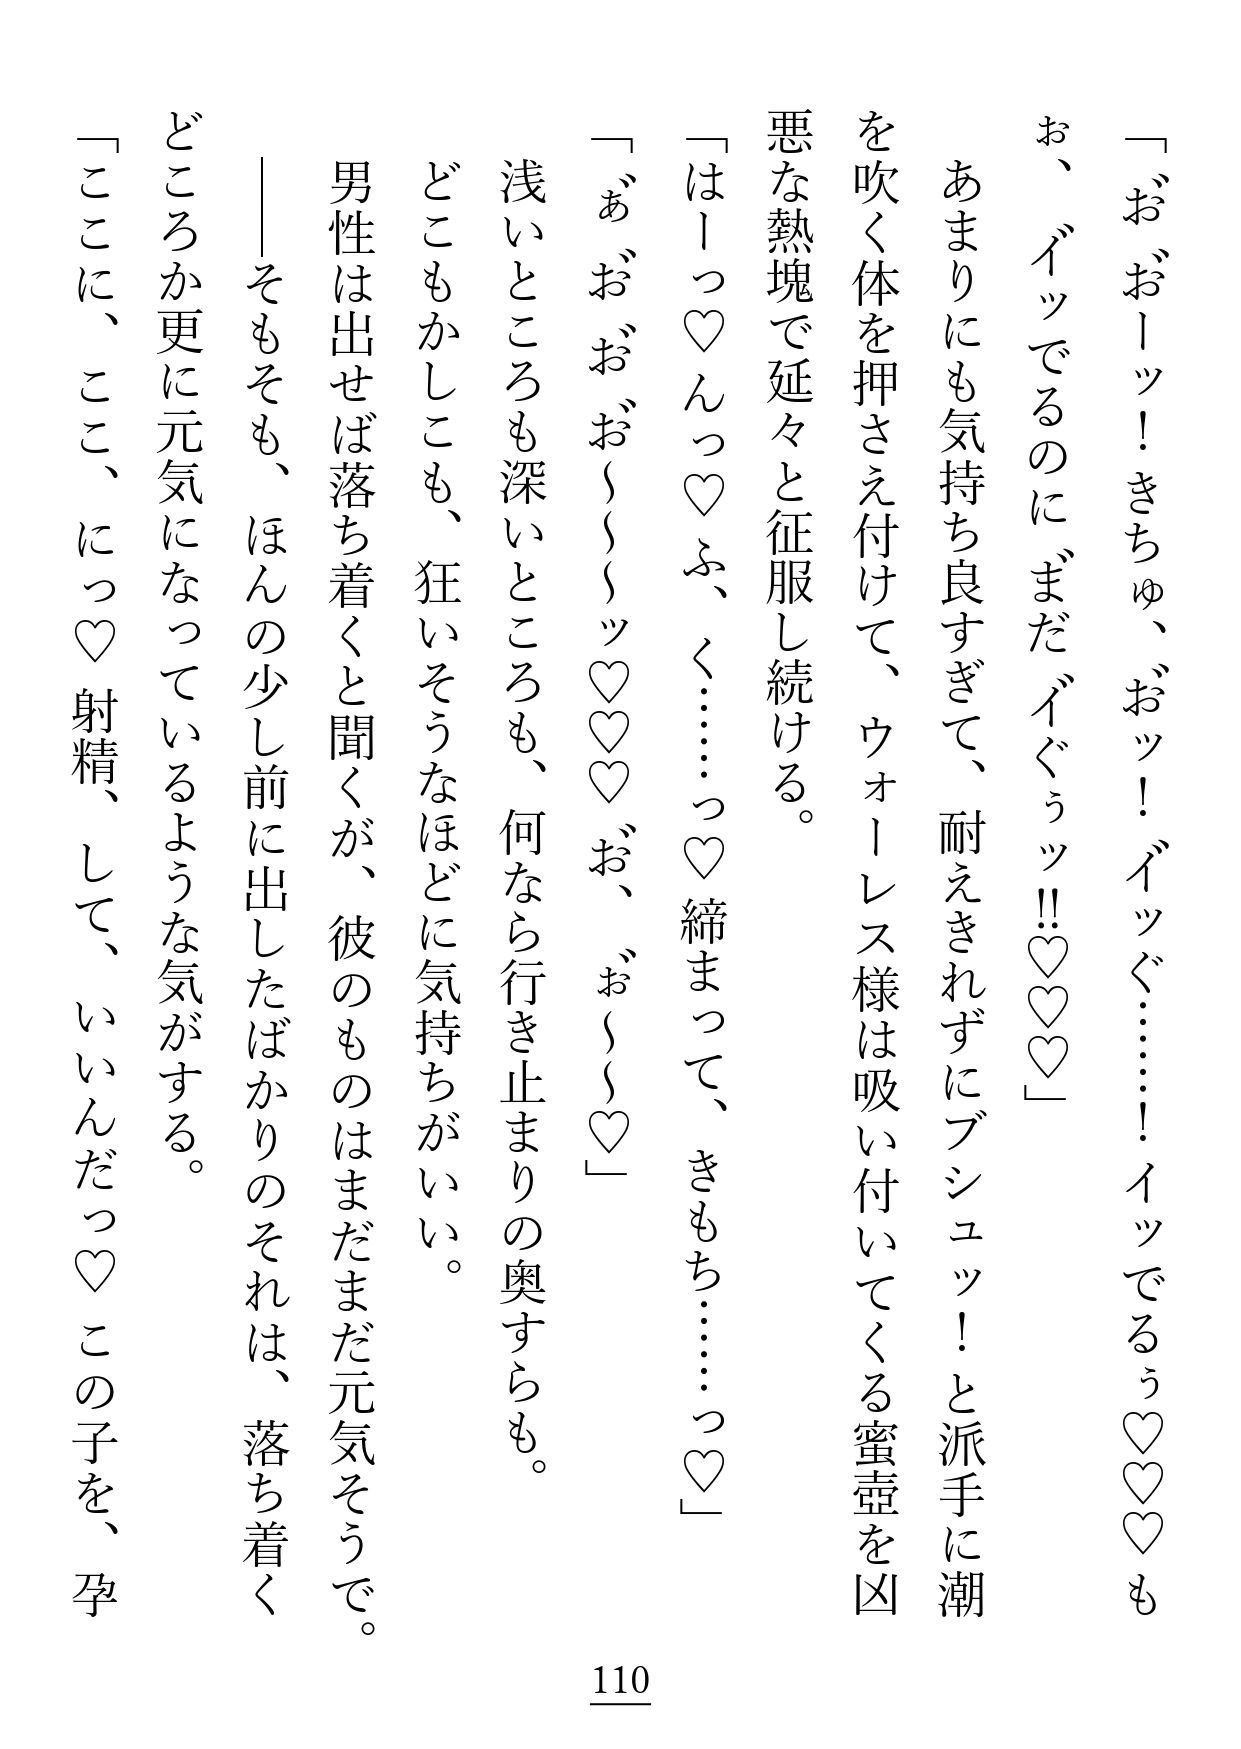 「お゛お゛ーッ！きちゅ、お゛ッ！イ゛ッぐ……！イッでるぅ♡♡♡も
ぉ、イ゛ッでるのにま゛だイ゛ぐぅッ‼♡♡♡」
　あまりにも気持ち良すぎて、耐えきれずにブシュッ！と派手に潮
を吹く体を押さえ付けて、ウォーレス様は吸い付いてくる蜜壺を凶
悪な熱塊で延々と征服し続ける。
「はーっ♡んっ♡ふ、く……っ♡締まって、きもち……っ♡」
「ぁ゛お゛お゛お゛～～～ッ♡♡♡お゛、ぉ゛～～♡」
　浅いところも深いところも、何なら行き止まりの奥すらも。
　どこもかしこも、狂いそうなほどに気持ちがいい。
　男性は出せば落ち着くと聞くが、彼のものはまだまだ元気そうで。
　――そもそも、ほんの少し前に出したばかりのそれは、落ち着く
どころか更に元気になっているような気がする。
「ここに、ここ、にっ♡射精、して、いいんだっ♡この子を、孕
110